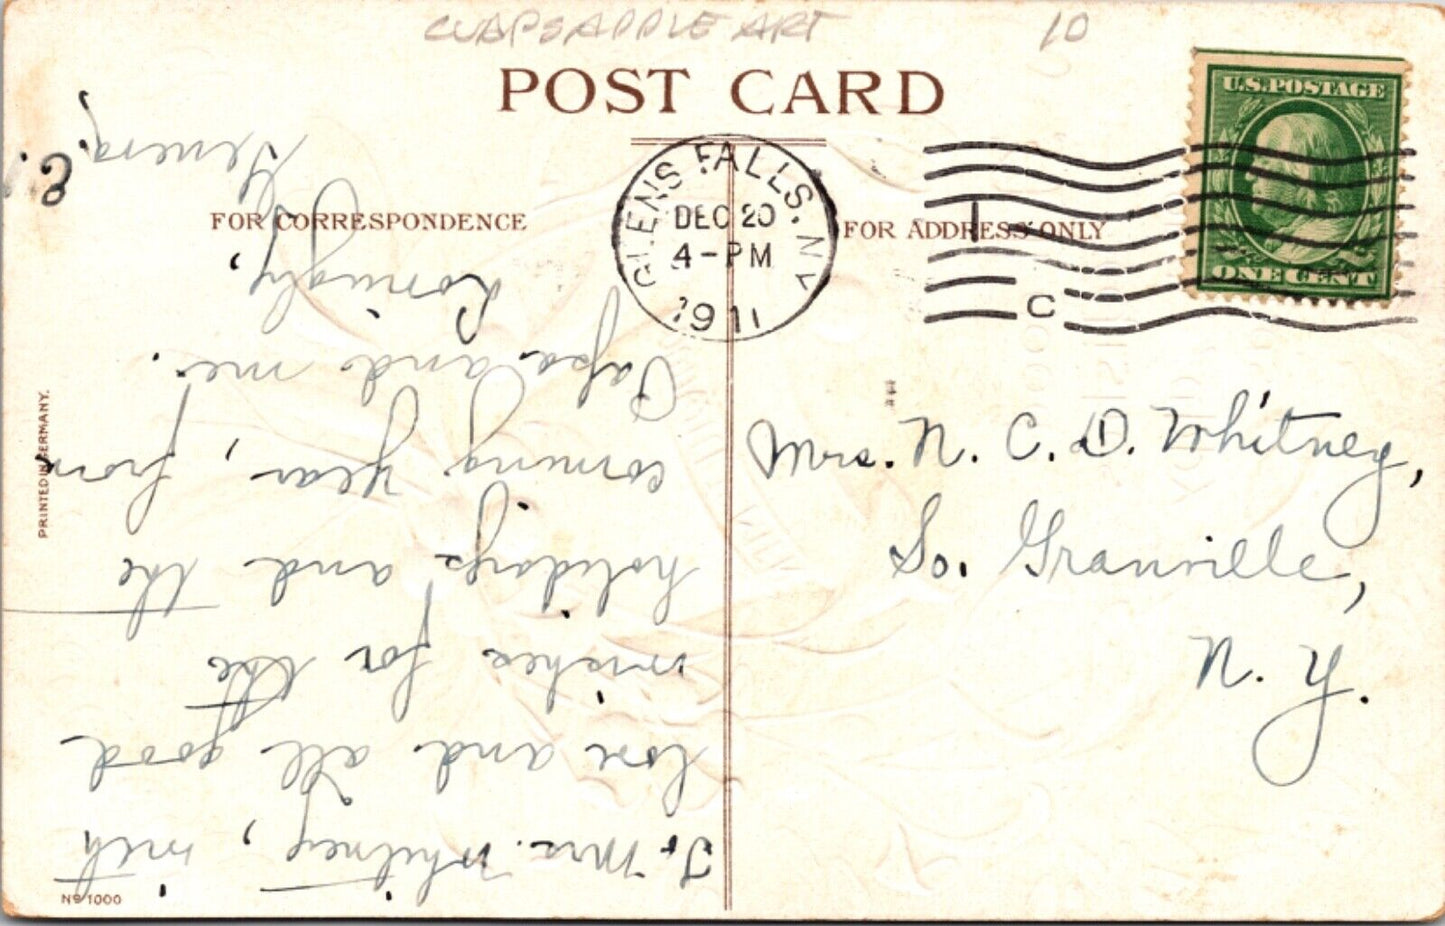 10
POST CARD
U.S. POSTAGE
ONE CENT
GLENS FALLS, N.Y.
DEC 20
4-PM
1911
C
FOR CORRESPONDENCE
FOR ADDRESS ONLY
Mrs. N. C. D. Whitney,
So. Granville,
N. Y.
To Mrs. Whitney, with
love and all good
wishes for the
holidays and the
coming year, from
Papa and me.
Lovingly,
PRINTED IN GERMANY.
No 1000